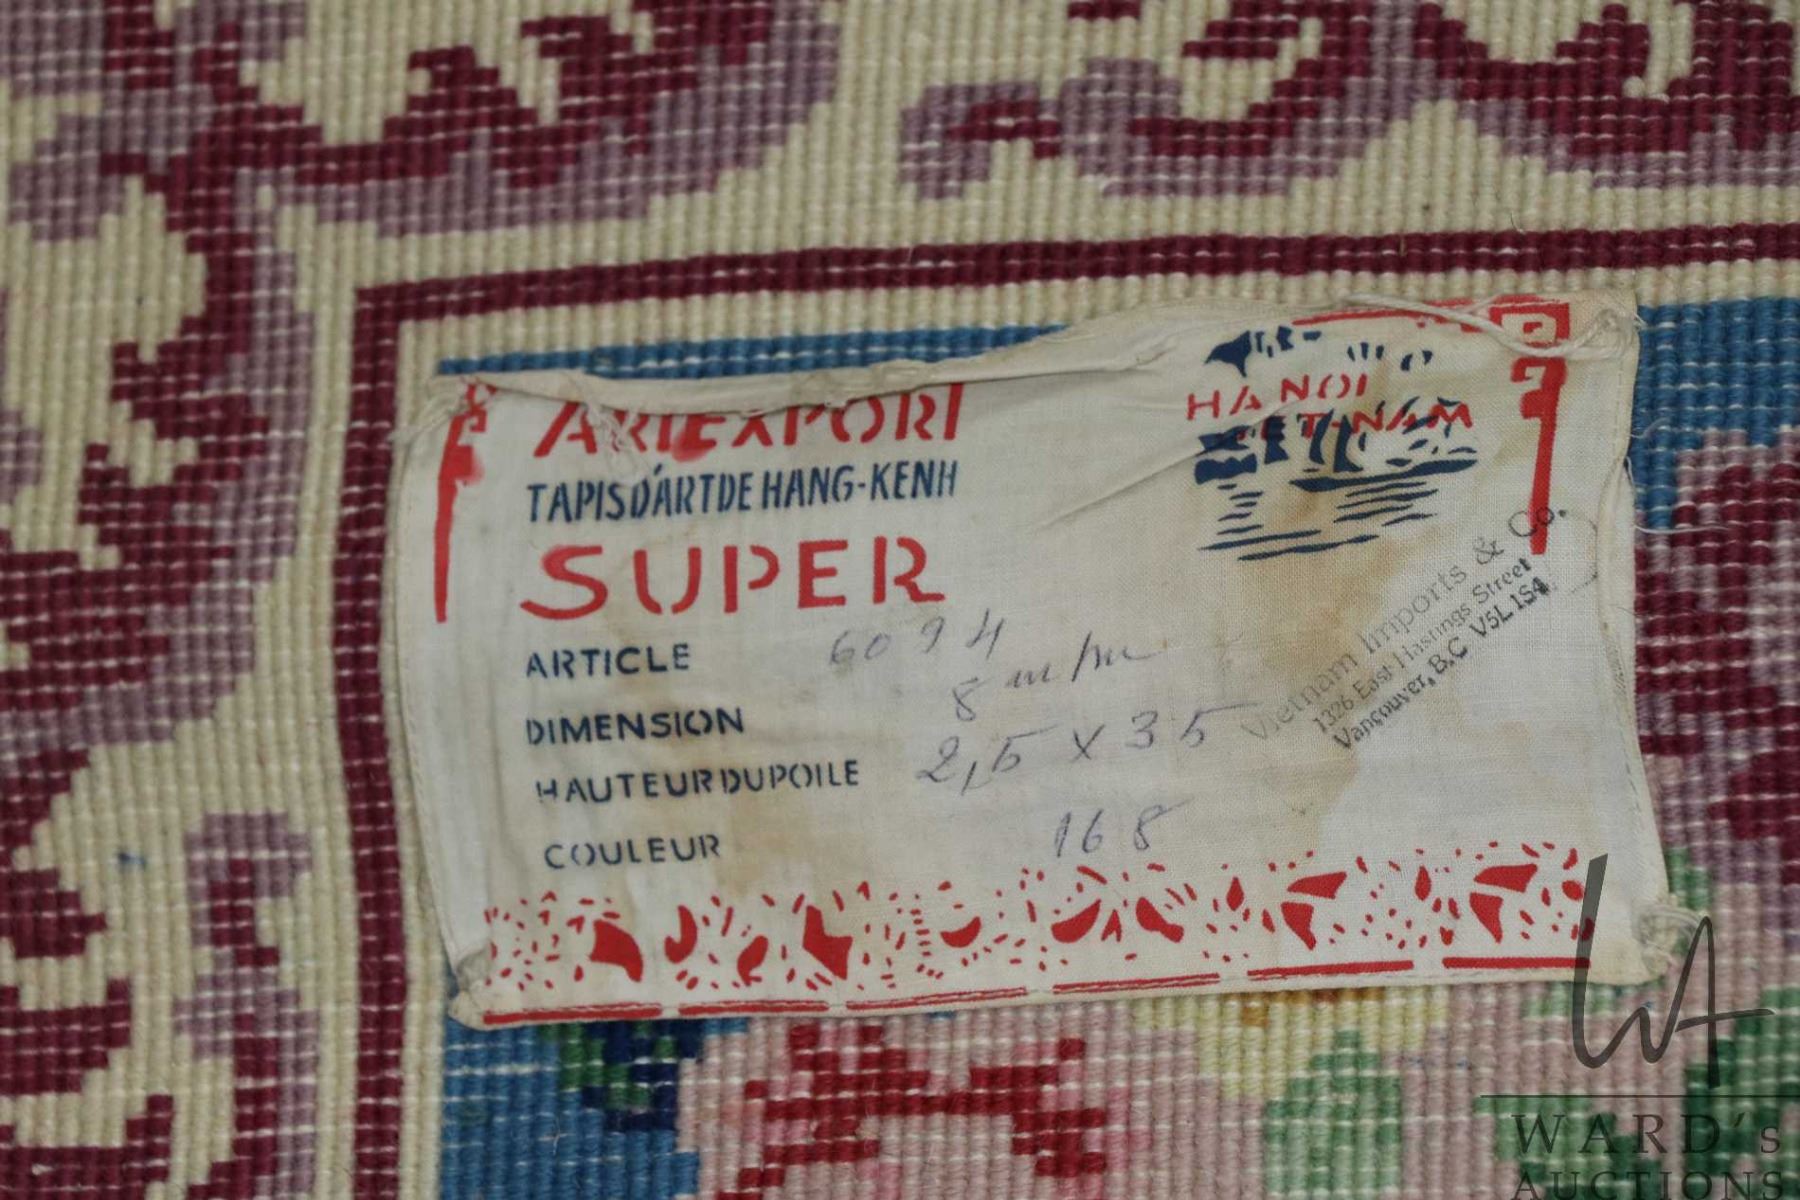 ARTEXPORT
HANOI
VIETNAM
TAPIS D'ART DE HANG-KENH
SUPER
ARTICLE 6094
8 m/m
DIMENSION
HAUTEUR DU POILE 2,5 x 35
COULEUR 168
Vietnam Imports & Co.
1326 East Hastings Street
Vancouver, B.C V5L 1S4
WA
WARD's
AUCTIONS